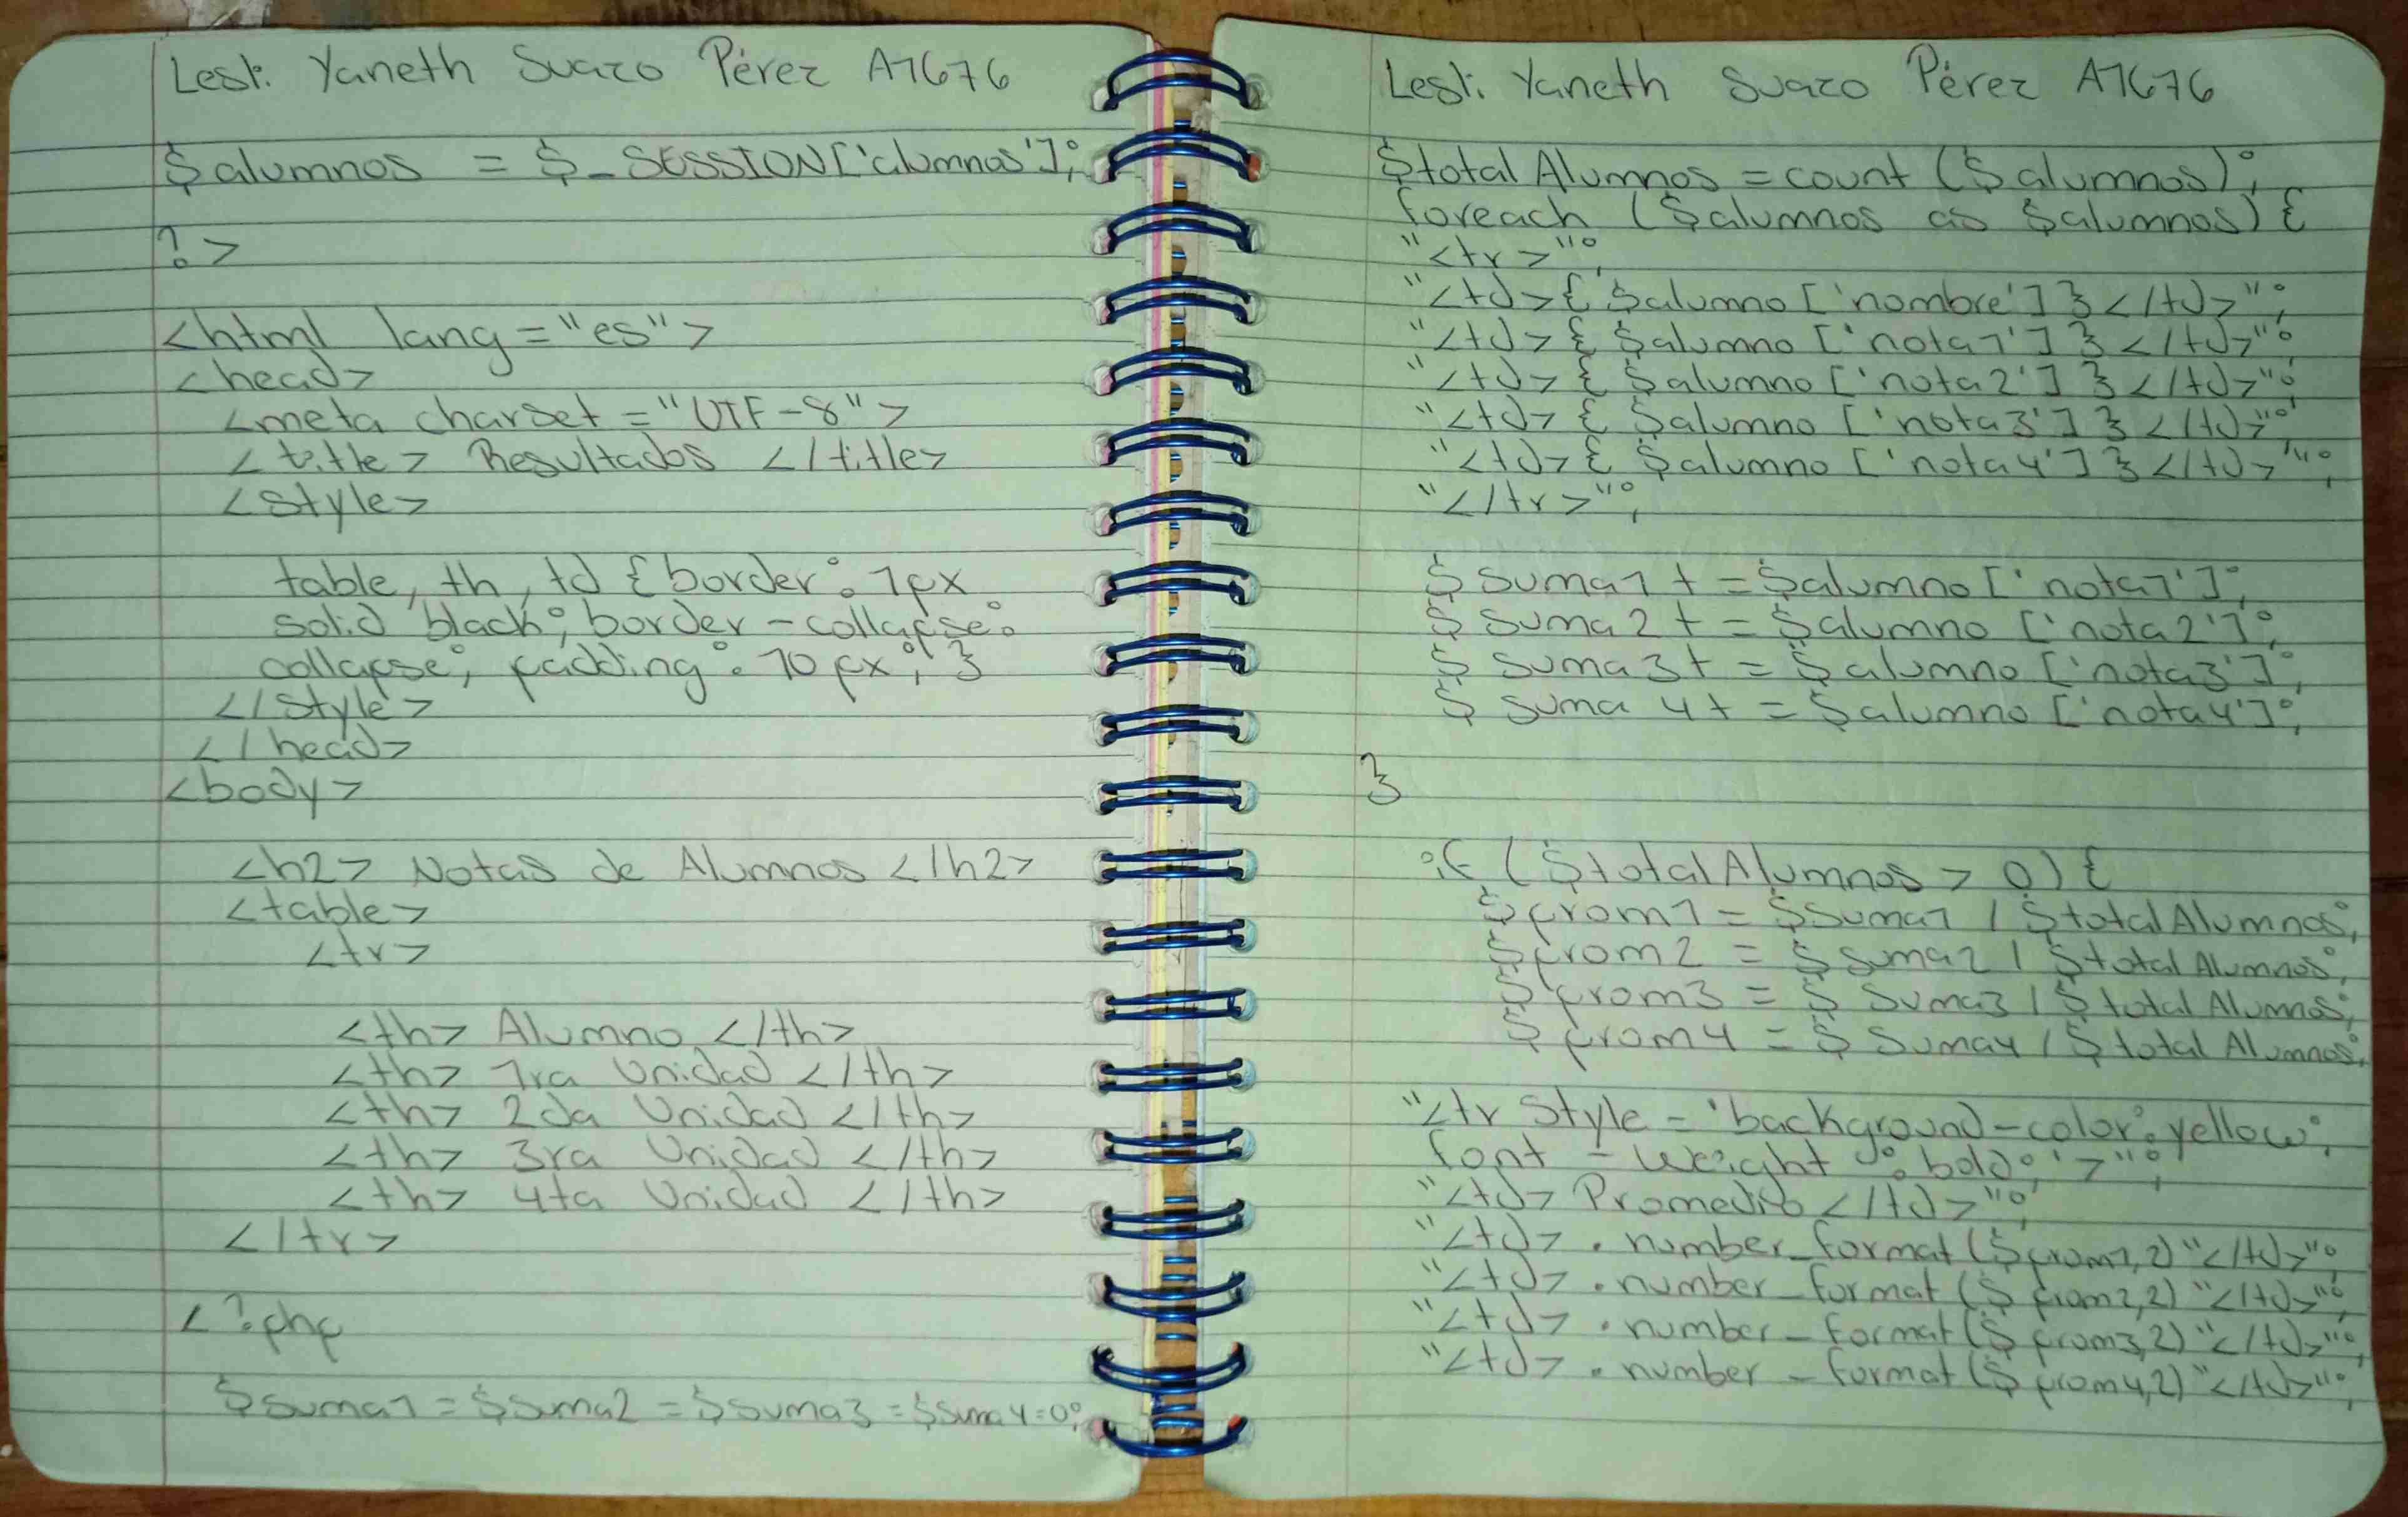 Lesli Yaneth Suazo Pérez A1676
$alumnos = $_SESSION['alumnos'];
?>
<html lang="es">
<head>
<meta charset="UTF-8">
<title> Resultados </title>
<style>
table, th, td {border: 1px
solid black; border-collapse:
collapse; padding: 10px; }
</style>
</head>
<body>
<h2> Notas de Alumnos </h2>
<table>
<tr>
<th> Alumno </th>
<th> 1ra Unidad </th>
<th> 2da Unidad </th>
<th> 3ra Unidad </th>
<th> 4ta Unidad </th>
</tr>
<?php
$suma1 = $suma2 = $suma3 = $suma4=0;
Lesli Yaneth Suazo Pérez A1676
$total Alumnos = count ($alumnos);
foreach ($alumnos as $alumnos) {
"<tr>";
"<td>{ $alumno ['nombre'] }</td>";
"<td>{ $alumno ['nota1'] }</td>";
"<td>{ $alumno ['nota2'] }</td>";
"<td>{ $alumno ['nota3'] }</td>";
"<td>{ $alumno ['nota4'] }</td>";
"</tr>";
$ suma1 += $alumno ['nota1'];
$ suma2 += $alumno ['nota2'];
$ suma3 += $alumno ['nota3'];
$ suma 4 += $alumno ['nota4'];
}
if ($total Alumnos > 0) {
$prom1 = $suma1 / $total Alumnos;
$prom2 = $ suma2 / $total Alumnos;
$prom3 = $ suma3 / $total Alumnos;
$prom4 = $ suma4 / $total Alumnos;
"<tr style = 'background-color: yellow;
font - weight : bold;'>";
"<td> Promedio </td>";
"<td> . number_format ($prom1,2) "</td>";
"<td> . number_format ($prom2,2) "</td>";
"<td> . number_format ($prom3,2) "</td>";
"<td> . number_format ($prom4,2) "</td>";